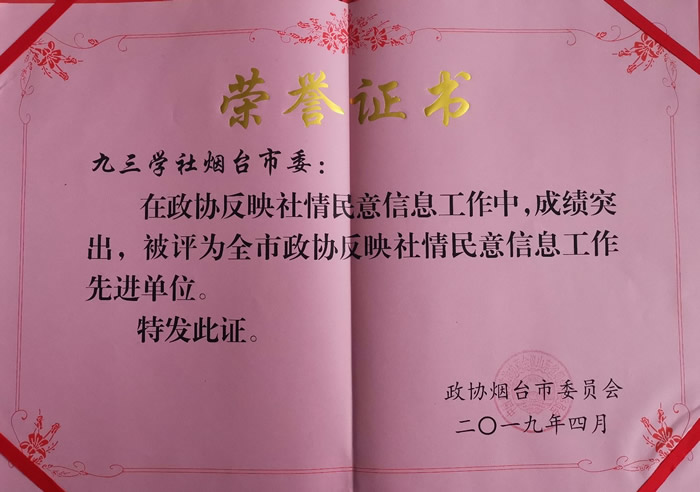 荣誉证书
九三学社烟台市委：
在政协反映社情民意信息工作中，成绩突
出，被评为全市政协反映社情民意信息工作
先进单位。
特发此证。
政协烟台市委员会
二〇一九年四月